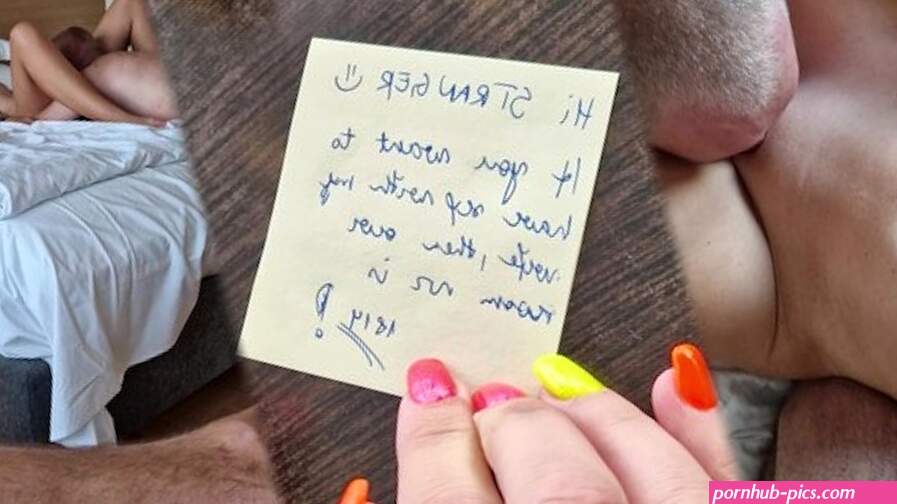 Hi STRANGER
If you want to
have sex with my
wife, then our
room nr is
1814 !
pornhub-pics.com